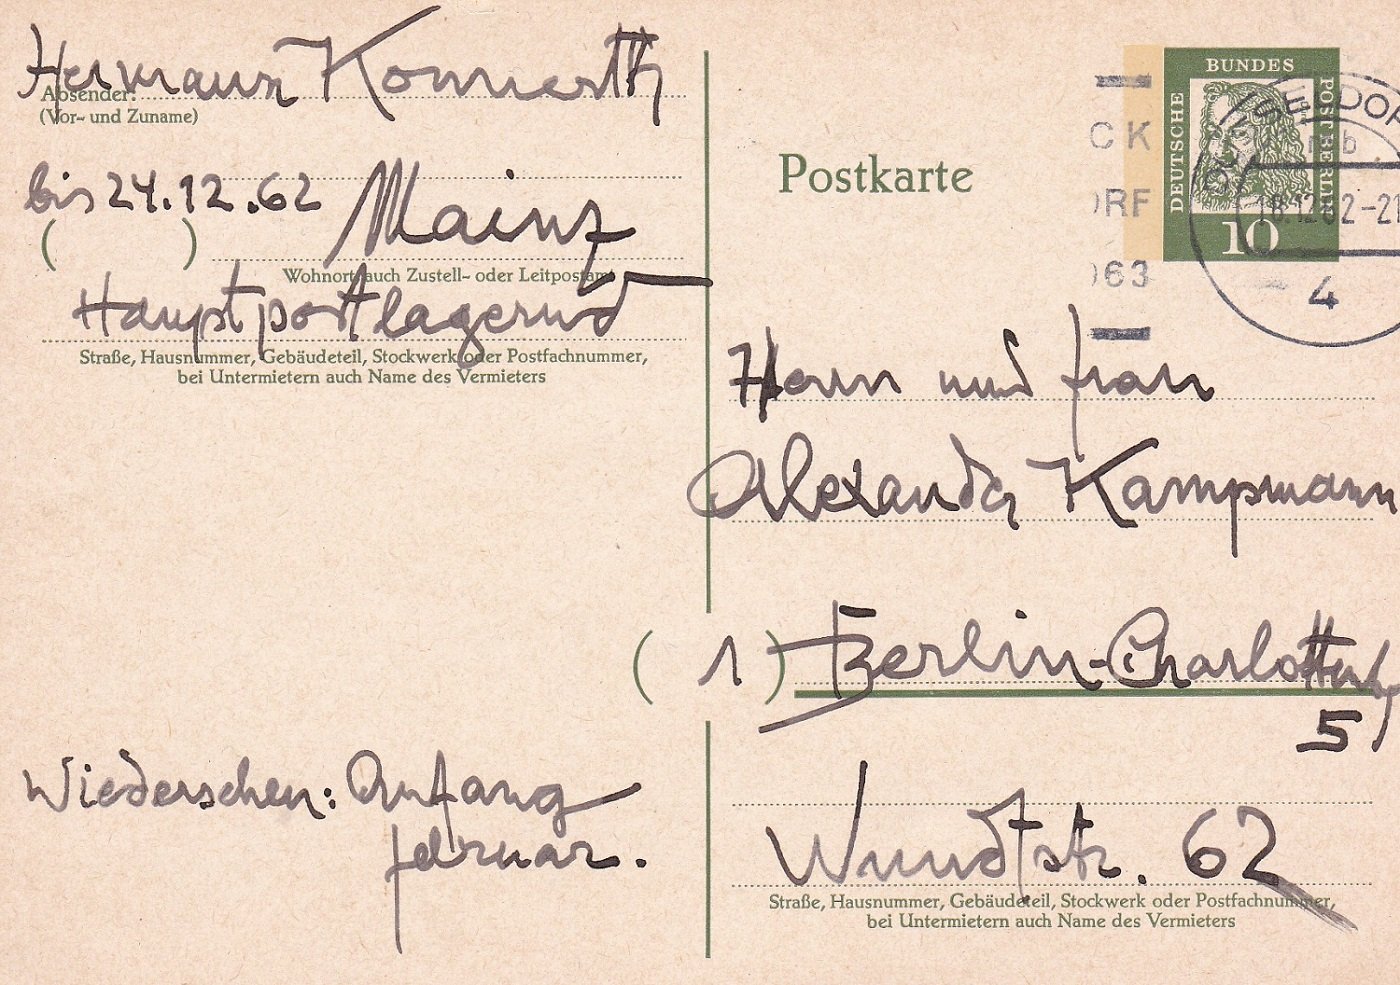 Hermann Konnerth
Absender:
(Vor- und Zuname)
bis 24.12.62 Mainz
( )
Wohnort, auch Zustell- oder Leitpostamt
Hauptpostlagernd
Straße, Hausnummer, Gebäudeteil, Stockwerk oder Postfachnummer,
bei Untermietern auch Name des Vermieters
Wiedersehen: Anfang
Februar.
Postkarte
DEUTSCHE
BUNDES
POST BERLIN
10
CK
ORF
963
SELDORF
mb
18.12.62-21
4
Herrn und Frau
Alexander Kampmann
( 1 ) Berlin-Charlottenbg
5
Wundtstr. 62
Straße, Hausnummer, Gebäudeteil, Stockwerk oder Postfachnummer,
bei Untermietern auch Name des Vermieters